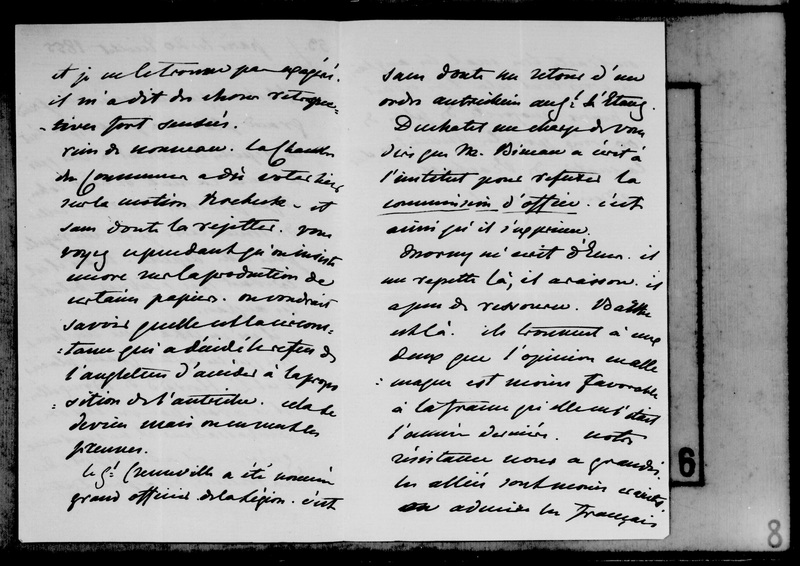 et je ne le trouve pas exagéré.
il m'a dit des choses rétrospec=
=tives fort sensées.
rien de nouveau. la Chambre
des Communes a dû voter hier
sur la motion Roebuck - et
sans doute la rejetter. vous
voyez cependant qu'on insiste
encore sur la production de
certains papiers. on voudrait
savoir quelle est la circons=
=tance qui a décidé le refus de
l'angleterre d'accéder à la propo
sition de l'autriche. cela se
devine mais on en veut les
preuves.
le gl Crenneville a été nommé
grand officier de la légion. c'est
sans doute un retour d'un
ordre autrichien au gl L'Etang.
Duchatel me charge de vous
dire que M. Bineau a écrit à
l'institut pour refuser la
commission d'office. c'est
ainsi qu'il s'exprime.
Morny m'écrit d'Ems. il
me regrette là, il a raison. il
a peu de ressources.
est là. ils trouvent à eux
deux que l'opinion en alle
=magne est moins favorable
à la france qu'elle n'était
l'année dernière. notre
résistance nous a grandis.
les alliés sont moins craints.
on admire les français
6
8